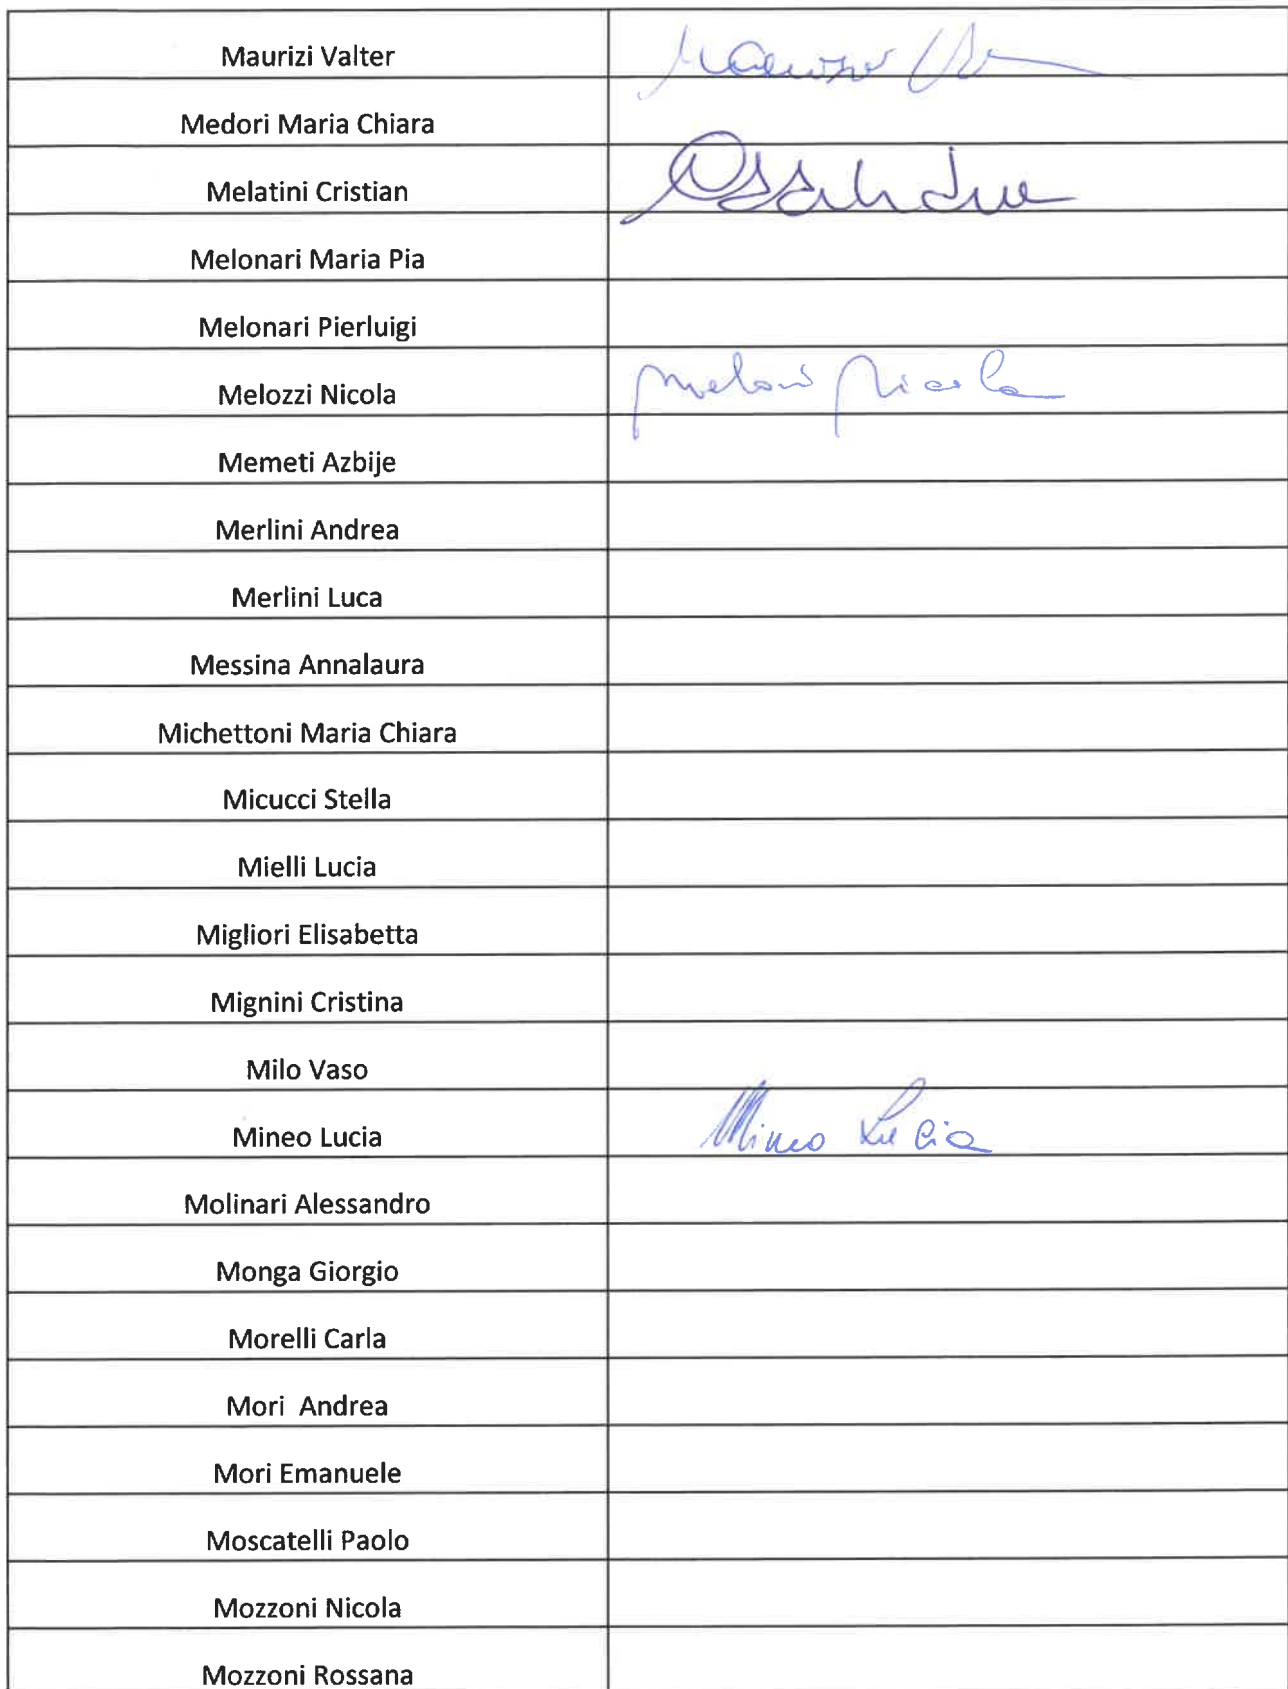 Maurizi Valter
Medori Maria Chiara
Melatini Cristian
Melonari Maria Pia
Melonari Pierluigi
Melozzi Nicola Nicola
Memeti Azbije
Merlini Andrea
Merlini Luca
Messina Annalaura
Michettoni Maria Chiara
Micucci Stella
Mielli Lucia
Migliori Elisabetta
Mignini Cristina
Milo Vaso
Mineo Lucia Mineo Lucia
Molinari Alessandro
Monga Giorgio
Morelli Carla
Mori Andrea
Mori Emanuele
Moscatelli Paolo
Mozzoni Nicola
Mozzoni Rossana